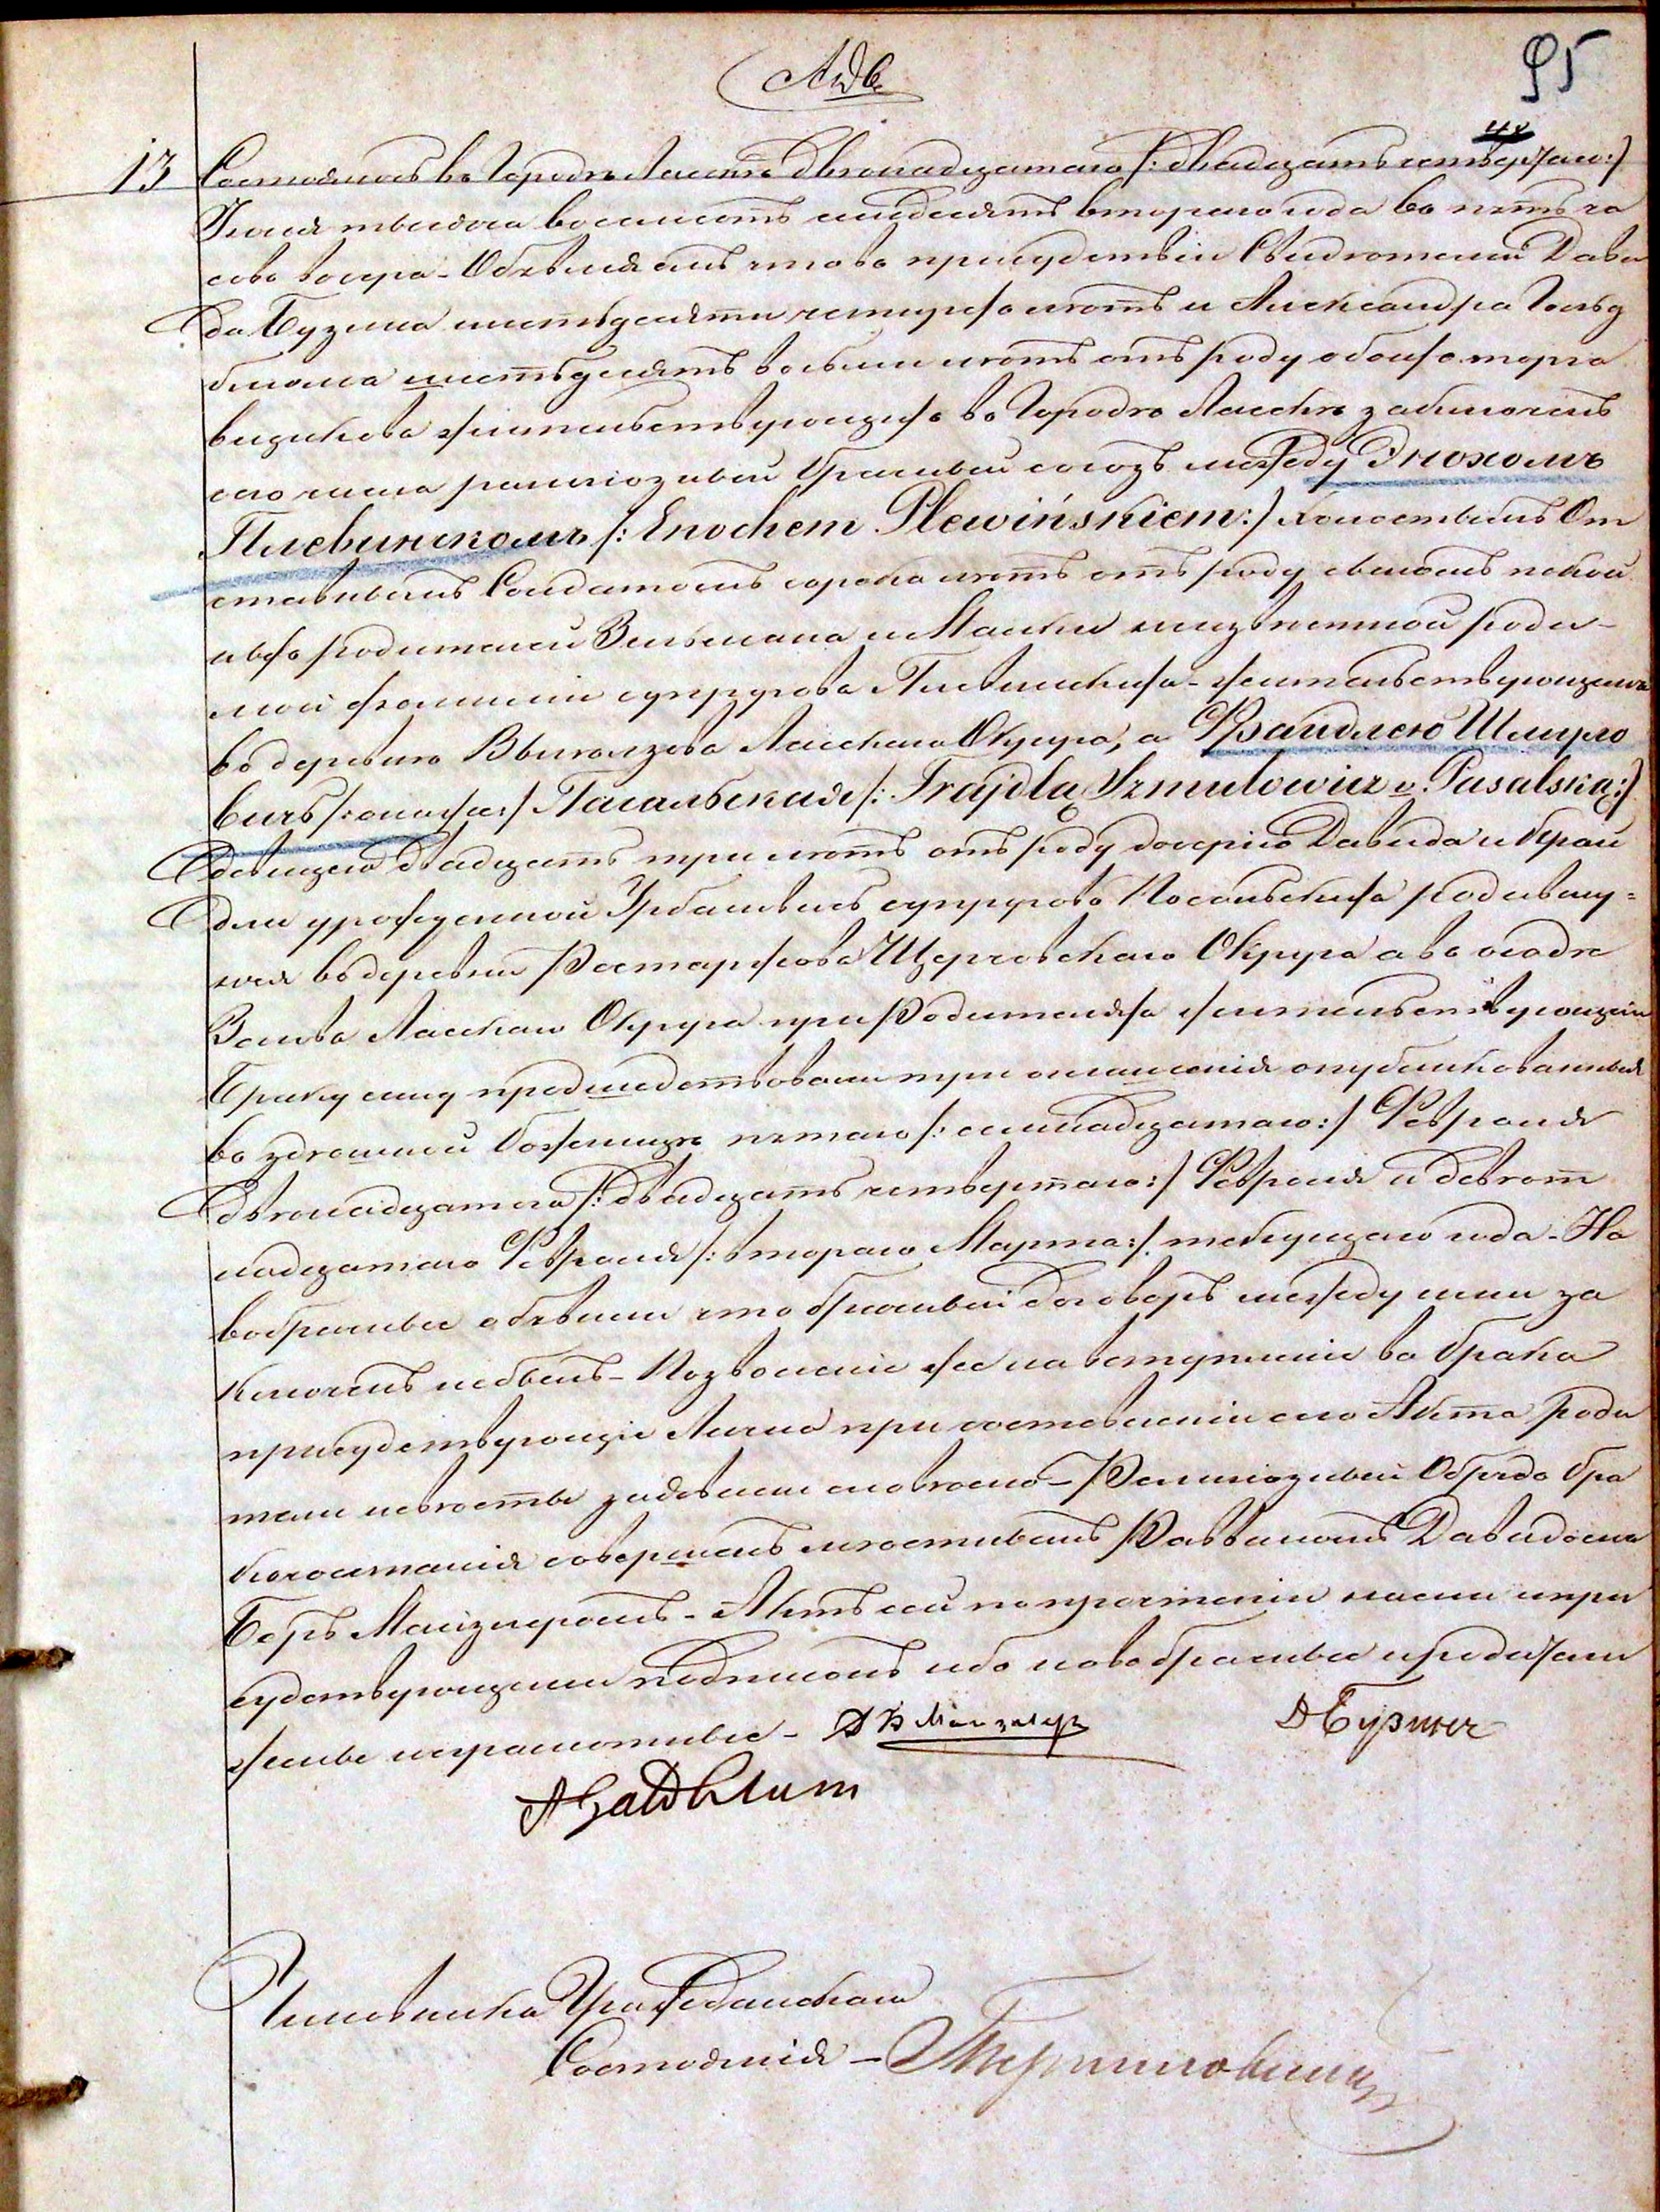 95
13 Состоялось въ Городѣ Ласкѣ двѣнадцатаго /: двадцать четвертаго :/
Іюня тысяча восемсотъ семдесятъ втораго года въ пять ча
совъ вечера - Объявляемъ что въ присудствіи Свидѣтелей Дави
да Бузина шестьдесяти четырехъ лѣтъ и Александра Гольд
блюма шестьдесятъ восьми лѣтъ отъ роду обоихъ торго
вщиковъ жительствующихъ въ Городѣ Ласкѣ заключенъ
сего числа религіозный брачный союзъ между Энохомъ
Плевинскомъ /: Enochem Plewińskiem :/ холостымъ От
ставнымъ Солдатомъ сорока лѣтъ отъ роду сыномъ покой
ныхъ родителей Зельмана и Малки неизвѣстной роди-
мой фамиліи супруговъ Плевинскихъ - жительствующимъ
въ деревнѣ Ласкаго Округа, а Фрайдлею Шмуло
вичъ Пасальская /: Frajdlą Szmulowicz v. Pasalską :/
Дѣвицею двадцать три лѣтъ отъ роду дочерью Давида и Брай
дли урожденной супруговъ Посальскихъ родившу-
юся въ деревни Рестаржевъ Щерцовскаго Округа а въ осадѣ
Ласкаго Округа при Родителяхъ жительствующую
Браку сему предшедствовали три оглашенія опубликованныя
въ здѣшней Божницѣ пятаго /: семнадцатаго :/ Февраля
Двѣнадцатаго /: двадцать четвертаго :/ Февраля и девят
надцатаго Февраля /: втораго Марта :/ текущаго года - Но
вобрачные объявили что брачный договоръ между ими за
ключенъ небылъ - Позволеніе же на вступленіе въ бракъ
присудствующіе Лично при составленіи сего Акта роди
тели невѣсты заявили словесно - Религіозный Обрядъ бра
косочетанія совершенъ мѣстнымъ Раввиномъ Давидомъ
Беръ Майзнеромъ - Актъ сей по прочтеніи нами и при
судствующими подписанъ ибо новобрачные и родители
неграмотные -
Д Бузинъ
A Goldblum
Чиновникъ Гражданскаго
Состоянія -